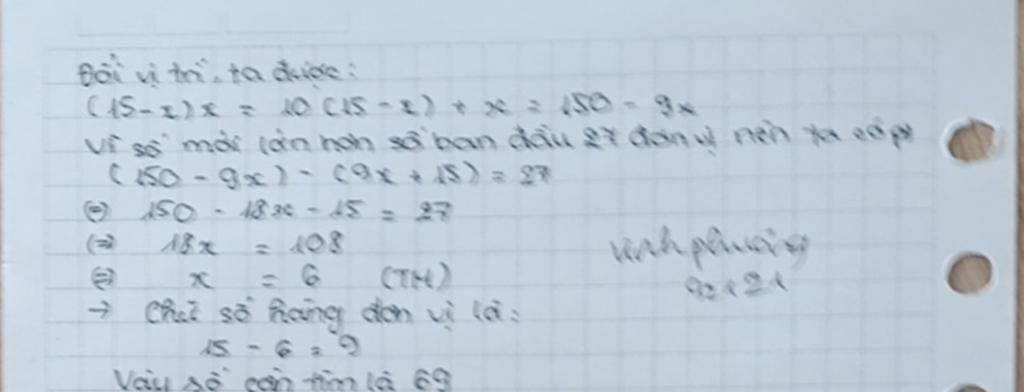 Đổi vị trí, ta được:
(15-x)x = 10(15-x) + x = 150 - 9x
Vì số mới lớn hơn số ban đầu 27 đơn vị nên ta có pt
(150 - 9x) - (9x + 15) = 27
(=) 150 - 18x - 15 = 27
(=) 18x = 108
(=) x = 6 (TM)
→ Chữ số hàng đơn vị là:
15 - 6 = 9
Vậy số cần tìm là 69